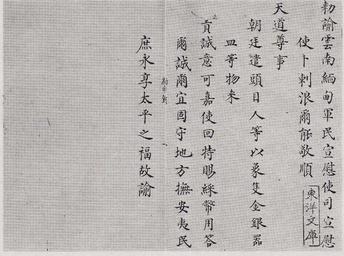 勅諭雲南緬甸軍民宣慰使司宣慰
使卜剌浪爾能敬順
天道尊事
朝廷遣頭目人等以象隻金銀器
皿等物来
貢誠意可嘉使回特賜綵幣用答
爾誠爾宜固守地方撫安夷民
庶永享太平之福故諭
東洋文庫